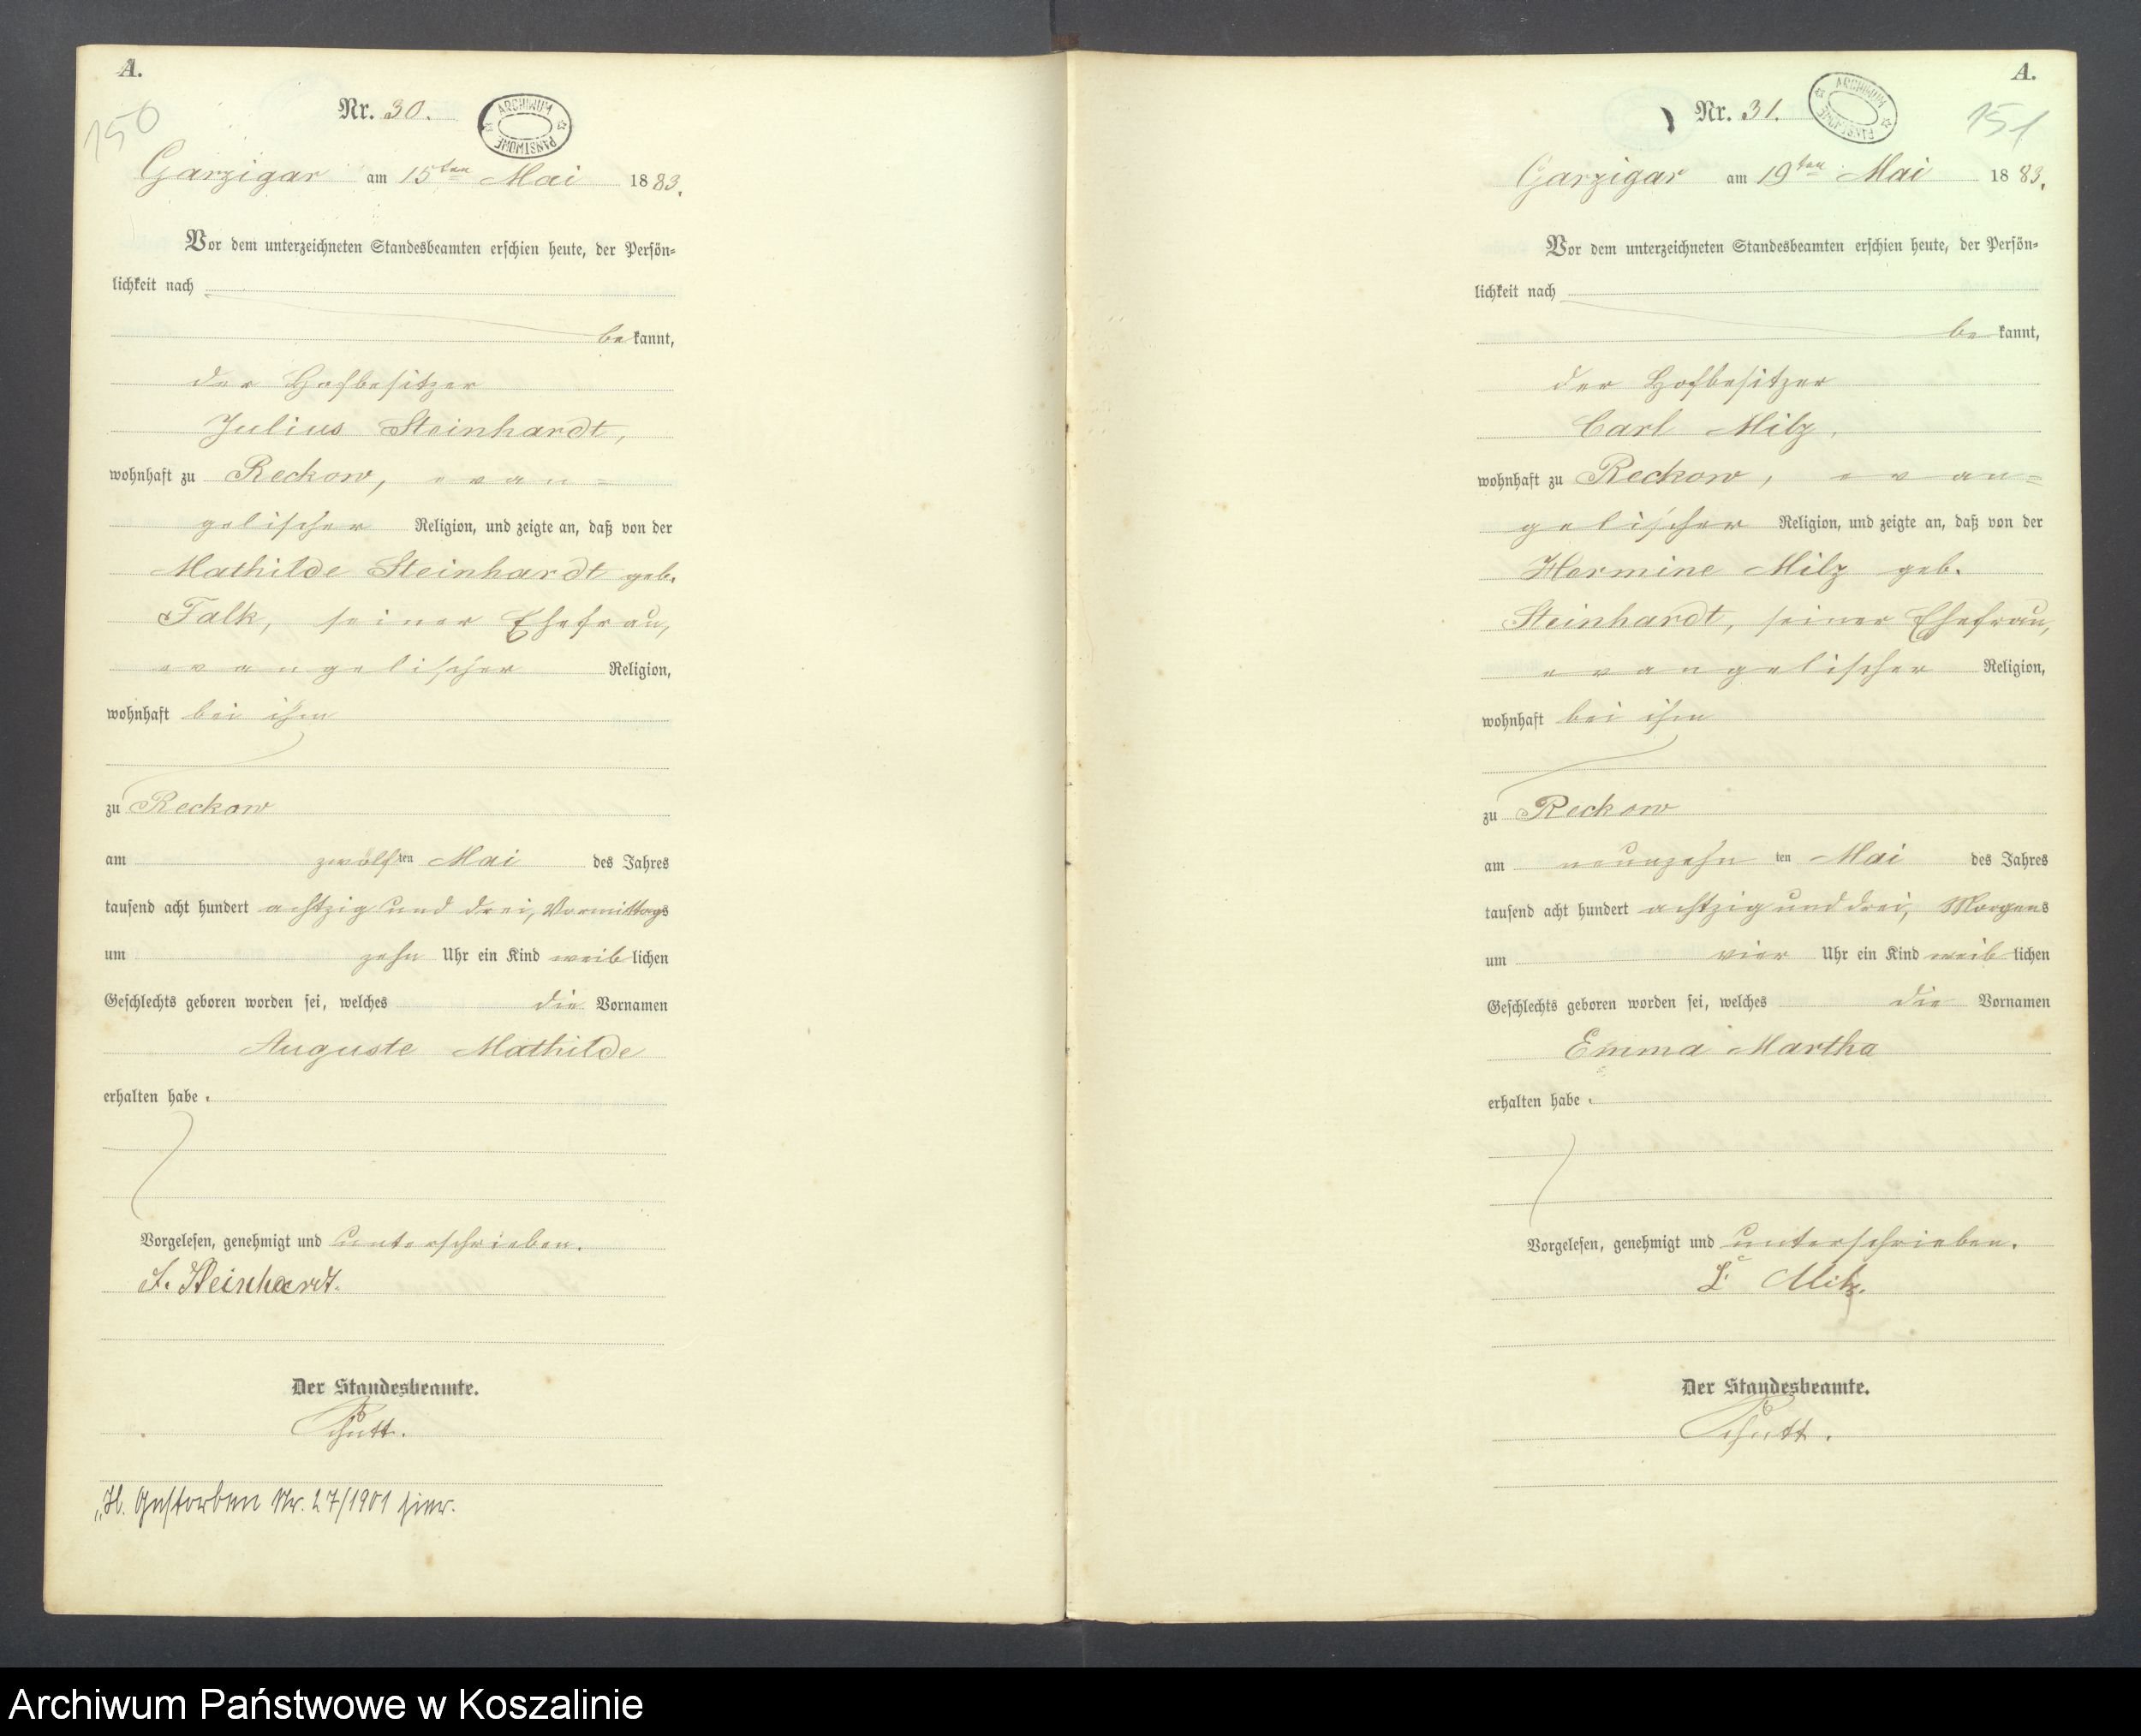 A.
150
Nr. 30.
ARCHIWUM PAŃSTWOWE
Garzigar am 15ten Mai 1883.
Vor dem unterzeichneten Standesbeamten erschien heute, der Persön=
lichkeit nach
bekannt,
der Hofbesitzer
Julius Steinhardt,
wohnhaft zu Reckow, evan=
gelischer Religion, und zeigte an, daß von der
Mathilde Steinhardt geb.
Falk, seiner Ehefrau,
evangelischer Religion,
wohnhaft bei ihm
zu Reckow
am zwölften Mai des Jahres
tausend acht hundert achtzig und drei, Vormittags
um zehn Uhr ein Kind weiblichen
Geschlechts geboren worden sei, welches die Vornamen
Auguste Mathilde
erhalten habe.
Vorgelesen, genehmigt und unterschrieben.
J. Steinhardt.
Der Standesbeamte.
Schutt.
„H. Gestorben Nr. 27/1901 hier.
A.
151
Nr. 31.
ARCHIWUM PAŃSTWOWE
Garzigar am 19ten Mai 1883.
Vor dem unterzeichneten Standesbeamten erschien heute, der Persön=
lichkeit nach
bekannt,
der Hofbesitzer
Carl Milz,
wohnhaft zu Reckow, evan=
gelischer Religion, und zeigte an, daß von der
Hermine Milz geb.
Steinhardt, seiner Ehefrau,
evangelischer Religion,
wohnhaft bei ihm
zu Reckow
am neunzehnten Mai des Jahres
tausend acht hundert achtzig und drei, Morgens
um vier Uhr ein Kind weiblichen
Geschlechts geboren worden sei, welches die Vornamen
Emma Martha
erhalten habe.
Vorgelesen, genehmigt und unterschrieben.
Milz.
Der Standesbeamte.
Schutt.
Archiwum Państwowe w Koszalinie